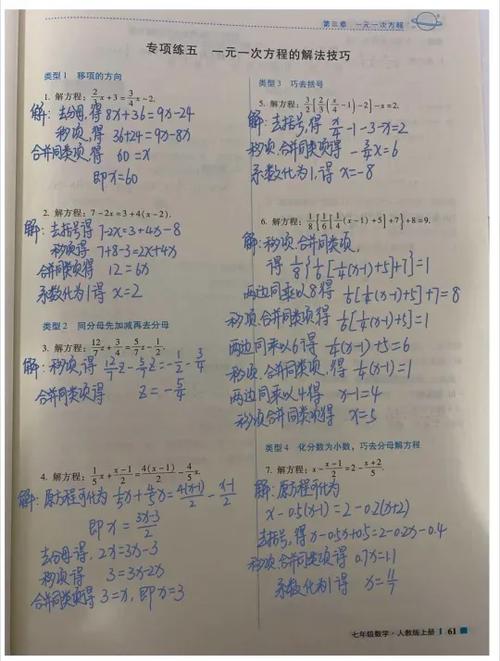 第三章 一元一次方程
专项练五 一元一次方程的解法技巧
类型1 移项的方向
1. 解方程: 2/3x+3=3/4x-2.
解:去分母,得 8x+36=9x-24
移项,得 36+24=9x-8x
合并同类项,得 60=x
即x=60
2. 解方程: 7-2x=3+4(x-2).
解:去括号得 7-2x=3+4x-8
移项得 7+8-3=2x+4x
合并同类项得 12=6x
系数化为1得 x=2
类型2 同分母先加减再去分母
3. 解方程: 12/7z+3/4=5/7z-1/2.
解:移项,得 12/7z-5/7z=-1/2-3/4
合并同类项得 z=-5/4
4. 解方程: 1/5x+(x-1)/2=4(x-1)/2-4/5x.
解:原方程可化为 1/5x+4/5x=4(x-1)/2-(x-1)/2
即x=(3x-3)/2
去分母得, 2x=3x-3
移项得 3=3x-2x
合并同类项得 3=x, 即x=3
类型3 巧去括号
5. 解方程: 3/2[2/3(x/4-1)-2]-x=2.
解:去括号,得 x/4-1-3-x=2
移项,合并同类项得 -3/4x=6
系数化为1,得 x=-8
6. 解方程: 1/8{1/6[1/4(x-1)+5]+7}+8=9.
解:移项,合并同类项,
得 1/8{1/6[1/4(x-1)+5]+7}=1
两边同乘以8得 1/6[1/4(x-1)+5]+7=8
移项,合并同类项得 1/6[1/4(x-1)+5]=1
两边同乘以6得 1/4(x-1)+5=6
移项合并同类项得 1/4(x-1)=1
两边同乘以4得 x-1=4
移项合并同类项得 x=5
类型4 化分数为小数,巧去分母解方程
7. 解方程: x-(x-1)/2=2-(x+2)/5.
解:原方程可化为
x-0.5(x-1)=2-0.2(x+2)
去括号,得 x-0.5x+0.5=2-0.2x-0.4
移项合并同类项得 0.7x=1.1
系数化为1得 x=11/7
七年级数学·人教版上册 61